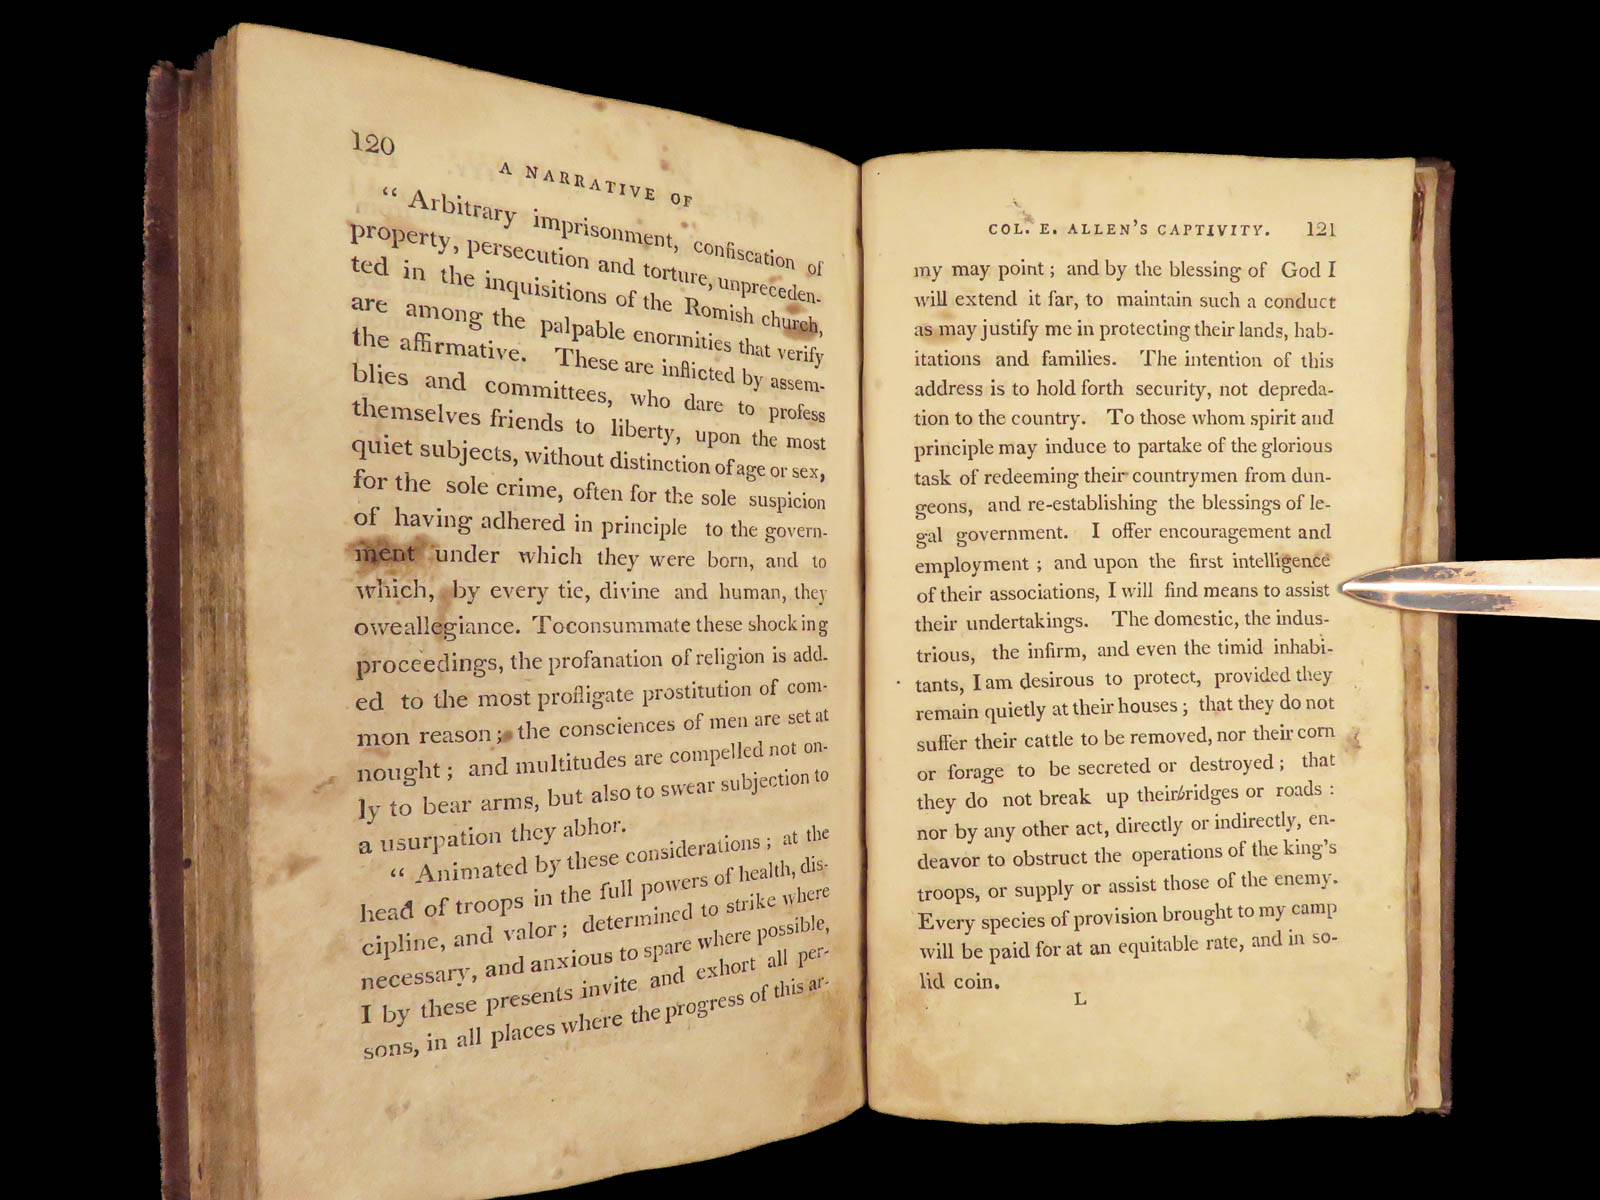 120
A NARRATIVE OF
“ Arbitrary imprisonment, confiscation of
property, persecution and torture, unpreceden-
ted in the inquisitions of the Romish church,
are among the palpable enormities that verify
the affirmative. These are inflicted by assem-
blies and committees, who dare to profess
themselves friends to liberty, upon the most
quiet subjects, without distinction of age or sex,
for the sole crime, often for the sole suspicion
of having adhered in principle to the govern-
ment under which they were born, and to
which, by every tie, divine and human, they
owe allegiance. To consummate these shocking
proceedings, the profanation of religion is add-
ed to the most profligate prostitution of com-
mon reason; the consciences of men are set at
nought; and multitudes are compelled not on-
ly to bear arms, but also to swear subjection to
a usurpation they abhor.
“ Animated by these considerations; at the
head of troops in the full powers of health, dis-
cipline, and valor; determined to strike where
necessary, and anxious to spare where possible,
I by these presents invite and exhort all per-
sons, in all places where the progress of this ar-
COL. E. ALLEN'S CAPTIVITY. 121
my may point; and by the blessing of God I
will extend it far, to maintain such a conduct
as may justify me in protecting their lands, hab-
itations and families. The intention of this
address is to hold forth security, not depreda-
tion to the country. To those whom spirit and
principle may induce to partake of the glorious
task of redeeming their countrymen from dun-
geons, and re-establishing the blessings of le-
gal government. I offer encouragement and
employment; and upon the first intelligence
of their associations, I will find means to assist
their undertakings. The domestic, the indus-
trious, the infirm, and even the timid inhabi-
tants, I am desirous to protect, provided they
remain quietly at their houses; that they do not
suffer their cattle to be removed, nor their corn
or forage to be secreted or destroyed; that
they do not break up their bridges or roads:
nor by any other act, directly or indirectly, en-
deavor to obstruct the operations of the king's
troops, or supply or assist those of the enemy.
Every species of provision brought to my camp
will be paid for at an equitable rate, and in so-
lid coin.
L